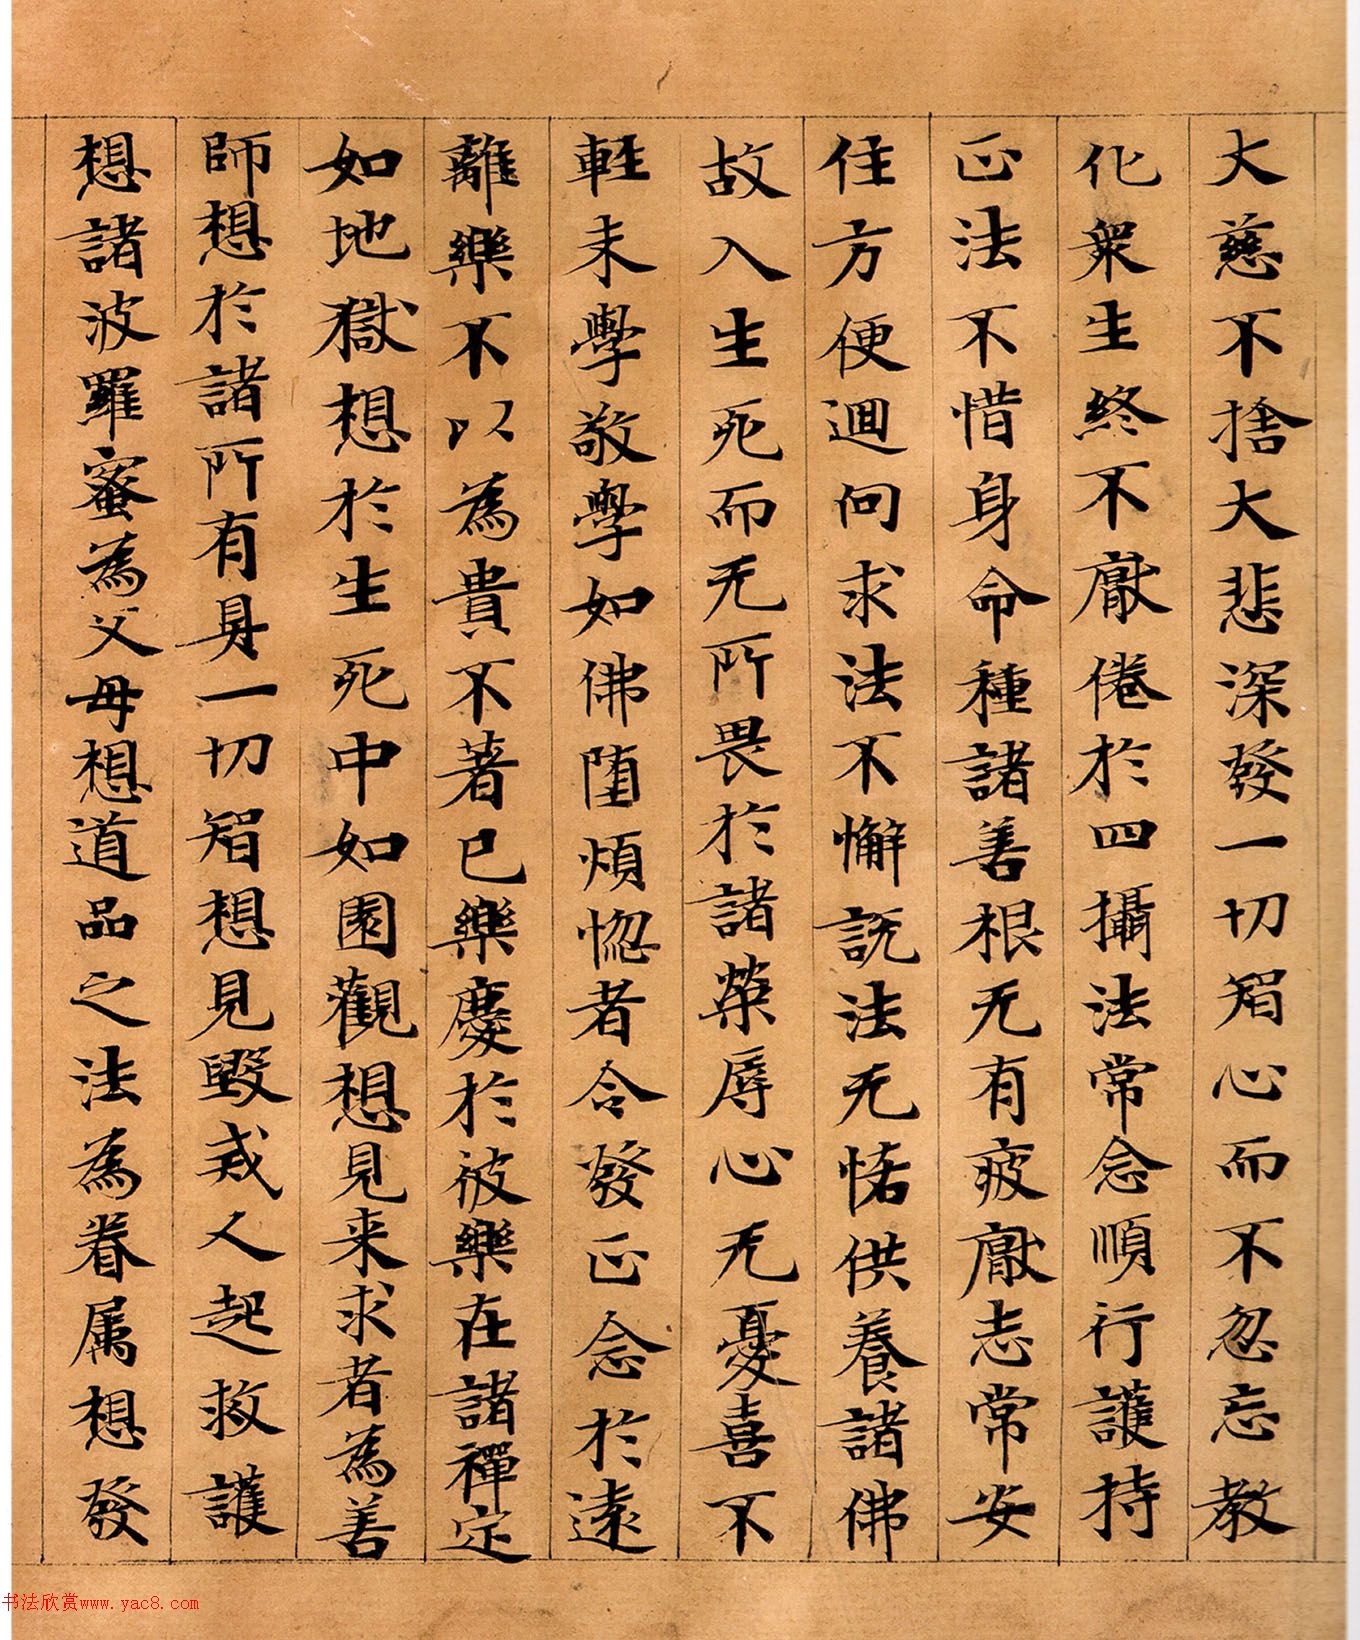 大慈不捨大悲深發一切智心而不忽忘教
化衆生終不厭倦於四攝法常念順行護持
正法不惜身命種諸善根无有疲厭志常安
住方便迴向求法不懈説法无悋供養諸佛
故入生死而无所畏於諸榮辱心无憂喜不
輕未學敬學如佛堕煩惱者令發正念於遠
離樂不以為貴不著已樂慶於彼樂在諸禪定
如地獄想於生死中如園觀想見来求者為善
師想於諸所有具一切智想見毀戒人起救護
想諸波羅蜜為父母想道品之法為眷属想發
书法欣赏www.yac8.com